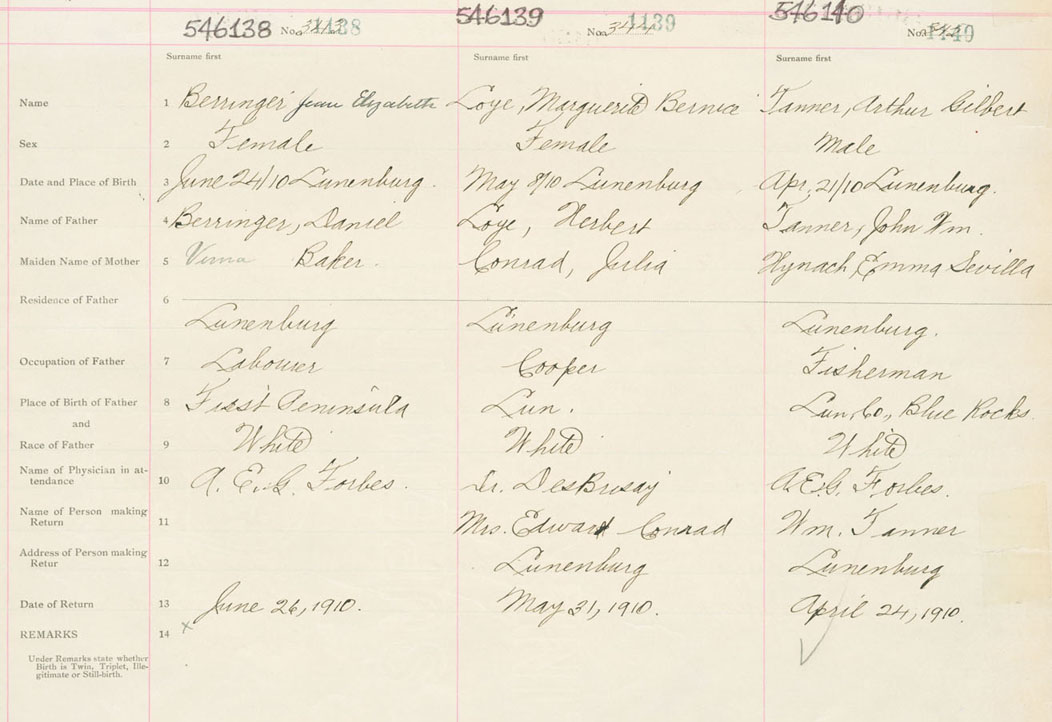 546138 No. 1138 546139 No. 1139 546140 No. 1140
Surname first Surname first Surname first
Name 1 Berringer Jean Elizabeth Loye, Marguerite Bernice Tanner, Arthur Gilbert
Sex 2 Female Female Male
Date and Place of Birth 3 June 24/10 Lunenburg. May 8/10 Lunenburg Apr. 21/10 Lunenburg.
Name of Father 4 Berringer, Daniel Loye, Herbert Tanner, John Wm.
Maiden Name of Mother 5 Verna Baker. Conrad, Julia Hynach, Emma Sevilla
Residence of Father 6
Lunenburg Lunenburg Lunenburg.
Occupation of Father 7 Labourer Cooper Fisherman
Place of Birth of Father 8 First Peninsula Lun. Lun. Co., Blue Rocks.
and
Race of Father 9 White White White
Name of Physician in at-
tendance 10 A. E. G. Forbes. Dr. DesBrisay A. E. G. Forbes.
Name of Person making
Return 11 Mrs. Edward Conrad Wm. Tanner
Address of Person making
Retur 12 Lunenburg Lunenburg
Date of Return 13 June 26, 1910. May 31, 1910. April 24, 1910.
REMARKS 14 x
Under Remarks state whether
Birth is Twin, Triplet, Ille-
gitimate or Still-birth.